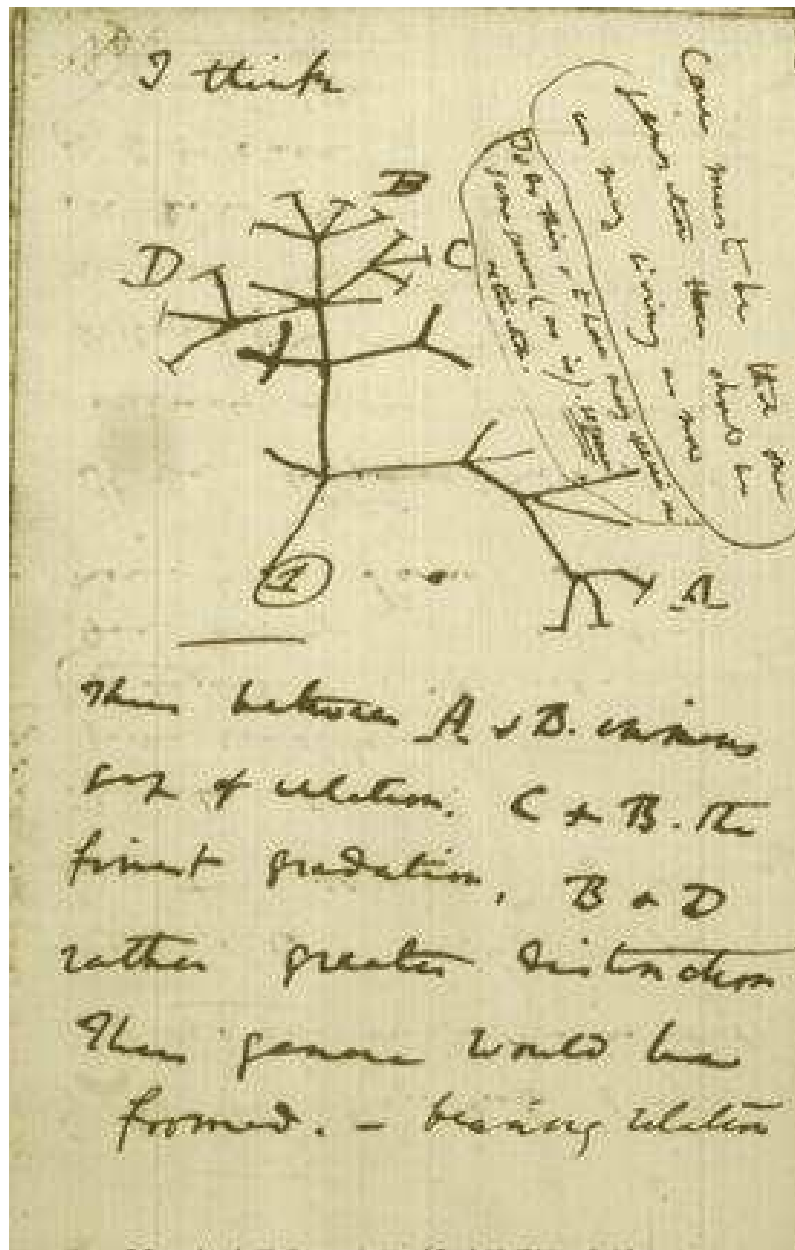 I think
B
D
C
Case must be that one
generation then should be
as many living as now
To do this & to have many species in
same genus (as is). requires
extinction.
1
A
Thus between A & B. immense
gap of relation. C & B. the
finest gradation, B & D
rather greater distinction
Thus genera would be
formed. — bearing relation